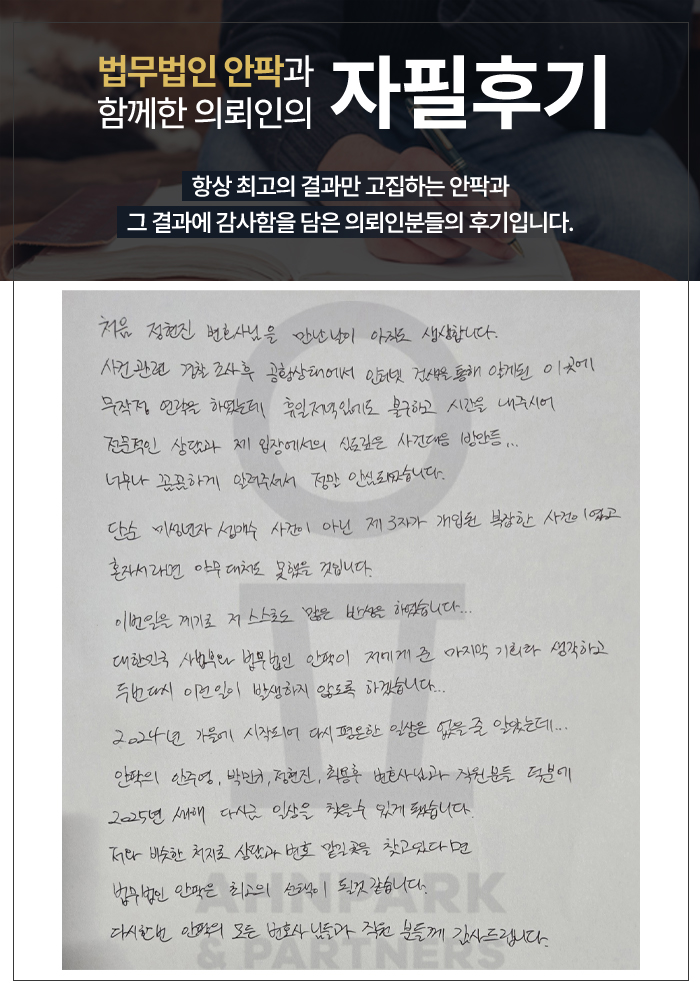 법무법인 안팍과
함께한 의뢰인의
자필후기
항상 최고의 결과만 고집하는 안팍과
그 결과에 감사함을 담은 의뢰인분들의 후기입니다.
처음 정현진 변호사님을 만난날이 아직도 생생합니다.
사건 관련 경찰 조사후 공황상태에서 인터넷 검색을 통해 알게된 이곳에
무작정 연락을 하였는데, 휴일저녁임에도 불구하고 시간을 내주시어
전문적인 상담과 제 입장에서의 심도깊은 사건대응 방안등...
너무나 꼼꼼하게 알려주셔서 정말 안심되었습니다.
단순 미성년자 성매수 사건이 아닌 제 3자가 개입된 복잡한 사건이였고
혼자서라면 아무 대처도 못했을 것입니다.
이번일을 계기로 저 스스로도 많은 반성을 하였습니다...
대한민국 사법부와 법무법인 안팍이 저에게 준 마지막 기회라 생각하고
두번다시 이런일이 발생하지 않도록 하겠습니다...
2024년 가을에 시작되어 다시 평온한 일상은 없을줄 알았는데...
안팍의 안주영, 박민규, 정현진, 최용후 변호사님과 직원분들 덕분에
2025년 새해 다시금 일상을 찾을수 있게 됐습니다.
저와 비슷한 처지로 상담과 변호 맡길곳을 찾고있다면
법무법인 안팍은 최고의 선택이 될것 같습니다.
다시한번 안팍의 모든 변호사님들과 직원 분들께 감사드립니다.
AHNPARK
& PARTNERS